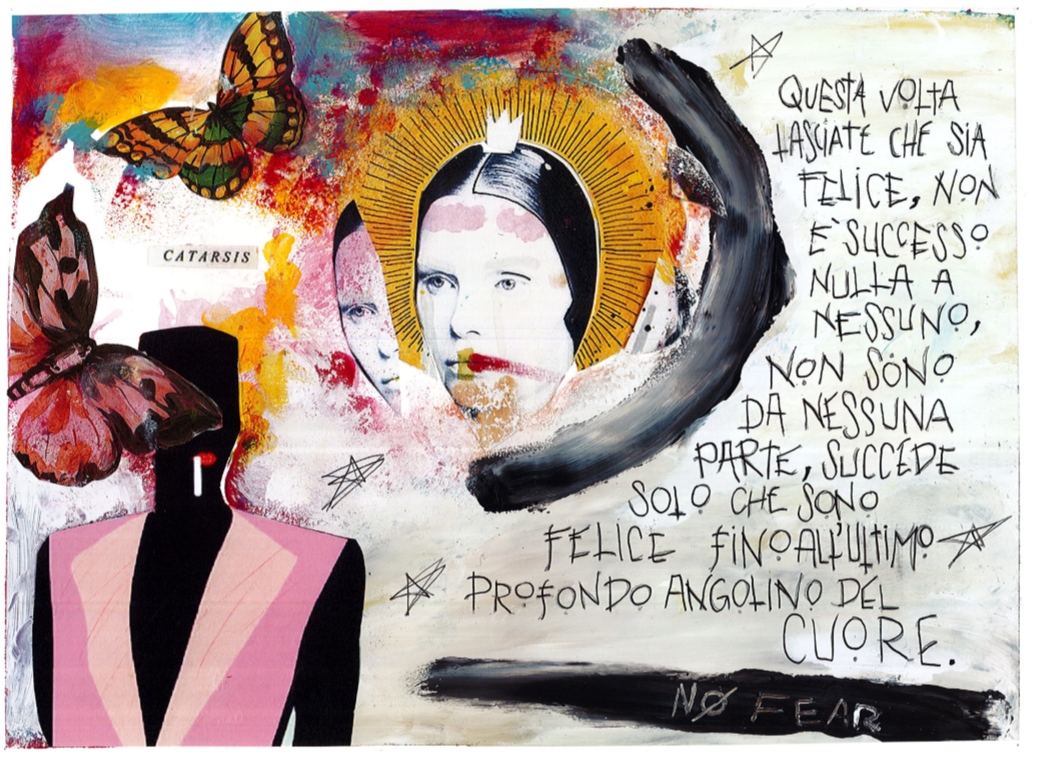 CATARSIS
QUESTA VOLTA
LASCIATE CHE SIA
FELICE, NON
È SUCCESSO
NULLA A
NESSUNO,
NON SONO
DA NESSUNA
PARTE, SUCCEDE
SOLO CHE SONO
FELICE FINO ALL'ULTIMO
PROFONDO ANGOLINO DEL
CUORE.
NO FEAR